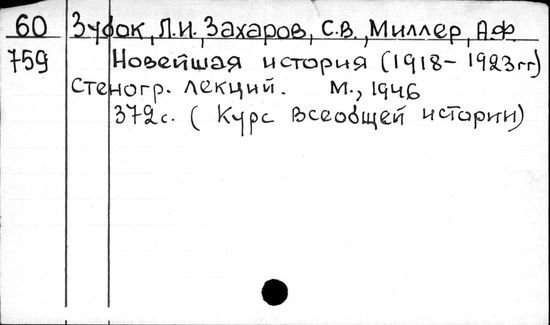 60 Зубок, Л.И., Захаров, С.В., Миллер, А.Ф.
759 Новейшая история (1918-1923гг)
Стеногр. лекций. М., 1946
372с. (Курс всеобщей истории)